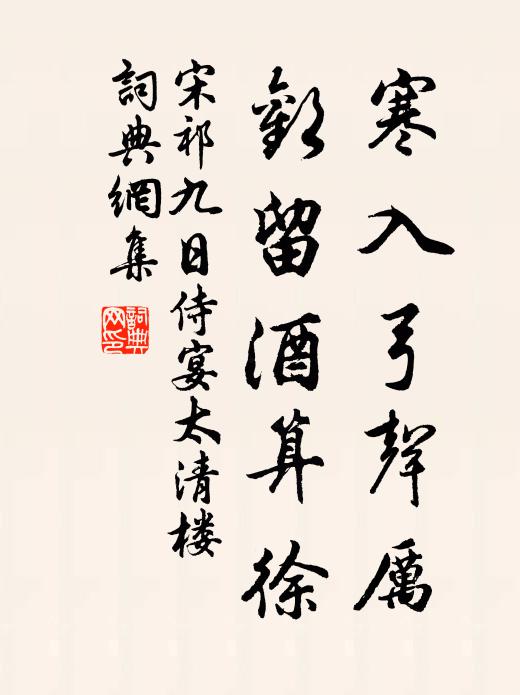 寒入弓聲厲
歡留酒算徐
宋祁九日侍宴太清楼
詞典網集
詞典网印